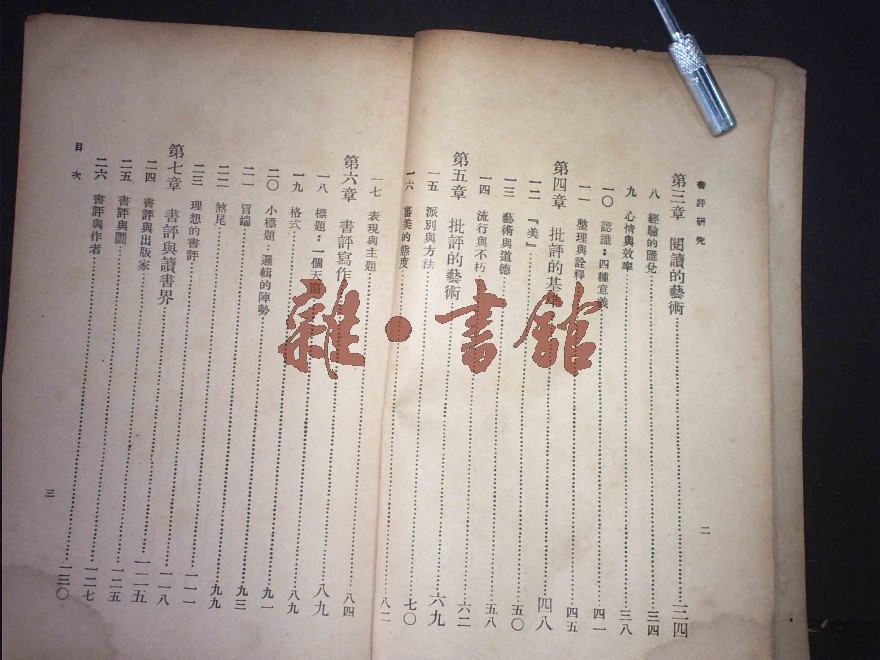 書評研究
第三章 閱讀的藝術 三四
八 經驗的匯兌 三四
九 心情與效率 三八
一〇 認識：四種意義 四一
一一 整理與詮釋 四五
第四章 批評的基 四八
一二 『美』 五〇
一三 藝術與道德 五八
一四 流行與不朽 六二
第五章 批評的藝術 六九
一五 派別與方法 七〇
一六 審美的態度 八二
二
一七 表現與主題 八四
第六章 書評寫作 八九
一八 標題：一個天 八九
一九 格式 九一
二〇 小標題：邏輯的陣勢 九三
二一 冒端 九九
二二 煞尾 一一一
二三 理想的書評 一一八
第七章 書評與讀書界 一二五
二四 書評與出版家 一二五
二五 書評與圕 一二七
二六 書評與作者 一三〇
目次
三
雜·書館